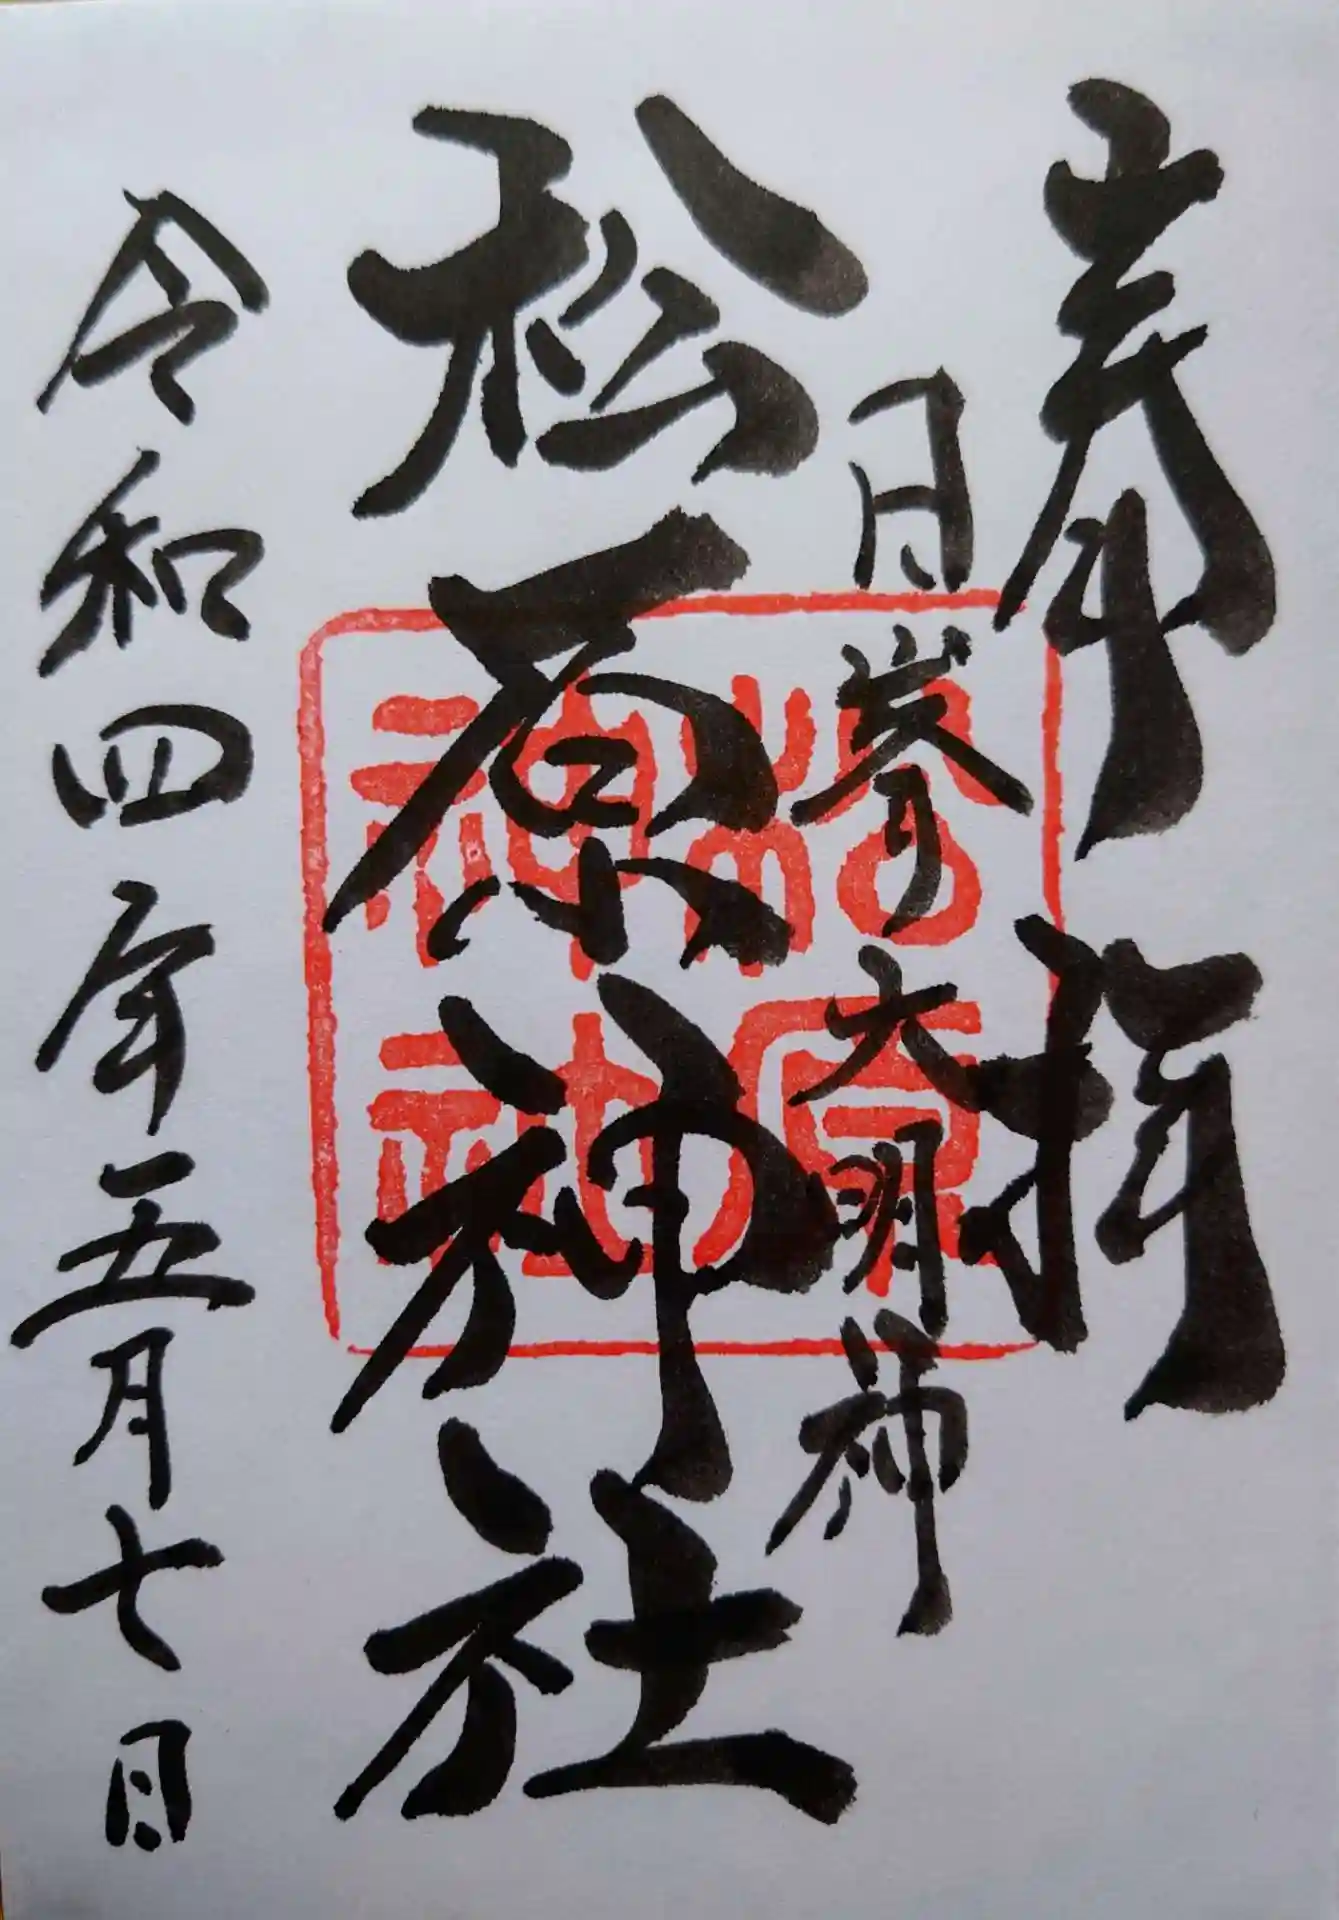 奉拝
日峯大明神
松原神社
令和四年五月七日
松原
神社